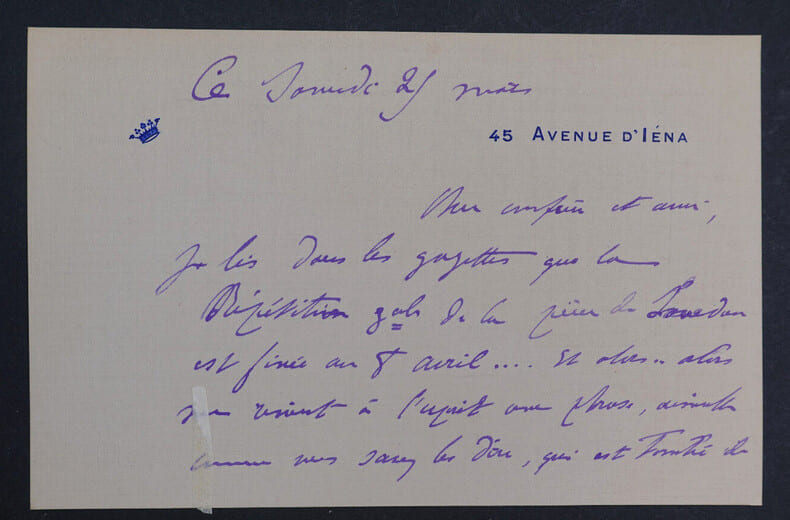 Ce Samedi 25 mars
45 AVENUE D'IÉNA
Mon confrère et ami,
Je lis dans les gazettes que la
Répétition gale de la pièce de
est fixée au 8 avril.... Et alors.. alors
me revient à l'esprit une phrase, aimable
comme vous savez les dire, qui est tombée de